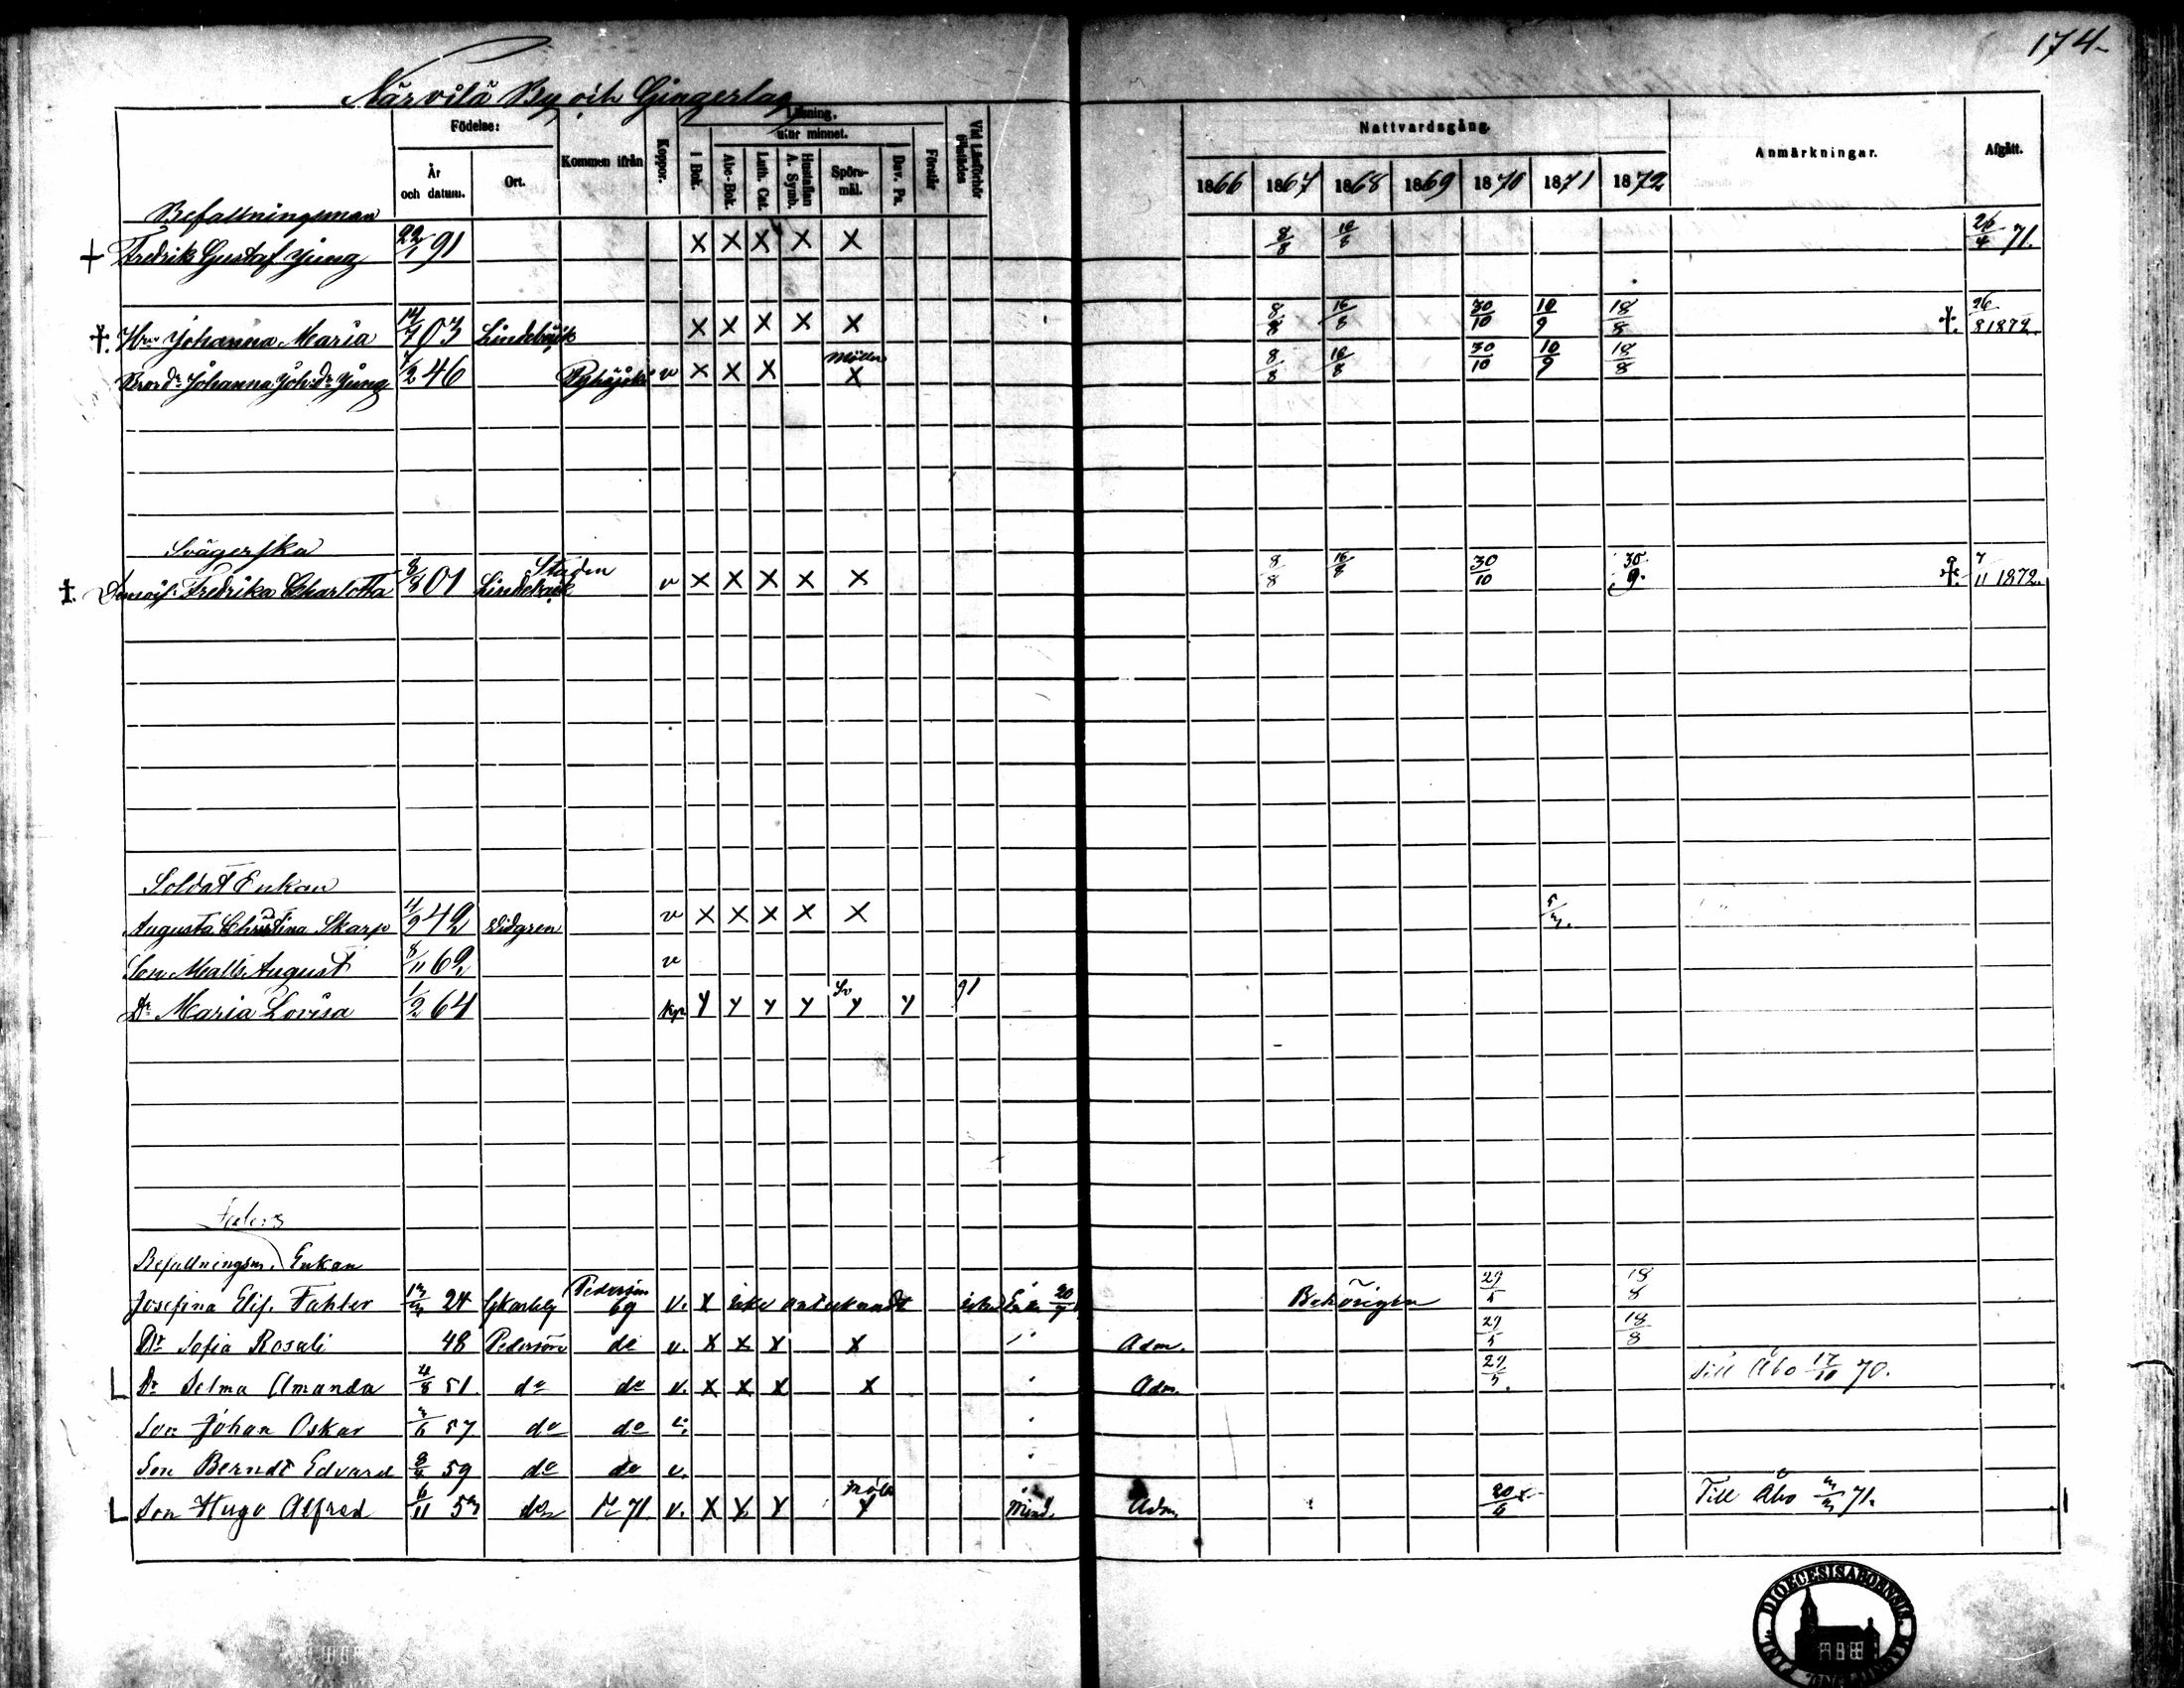 174
Närvilä By och Gingerlag
Födelse: Läsning. Nattvardsgång.
utur minnet.
År och datum. Ort. Kommen ifrån Koppor. I Bok. Abc-Bok. Luth. Cat. Hustaflan A. Symb. Spörsmål. Dav. Ps. Förstår Vid Läsförhör 1866 1867 1868 1869 1870 1871 1872 Anmärkningar. Afgått.
Befallningsman
+ Fredrik Gustaf Ljung 22/1 91 X X X X X 8/8 16/8 26/4 71.
†. Hru Johanna Maria 14/7 03 Lindebäck X X X X X 8/8 16/8 30/10 10/9 18/8 †. 26/8 1872
Brord. Johanna Joh:dr Ljung 7/2 46 Pyhäjoki v X X X X 8/8 16/8 30/10 10/9 18/8
Svägerska
Staden
†. Demois. Fredrika Charlotta 8/8 01 Lindebäck v X X X X X 8/8 16/8 30/10 30/9. †. 7/11 1872.
Soldat Enkan
Augusta Christina Skarp 11/9 42 Widgren v X X X X X
Son Matts August 8/11 62 v
Dr Maria Lovisa 1/2 64 kp Y Y Y Y Sv Y Y 91
Befallningsm. Enkan
Josefina Elis. Fahler 24 Pedersöre 69 v. X Behörigen 29/5 18/8
Dr Sofia Rosali 48 Pedersöre do v. X X X X Adm. 29/5 18/8
L Dr Selma Amanda 4/8 51 do do v. X X X X Adm. 29/5. Till Åbo 17/10 70.
Son Johan Oskar 57 do do v.
Son Bernдt Edvard 59 do do v.
L Son Hugo Alfred 6/11 do 71 v. X X X X Adm. Till Åbo 71.
DIOECESIS ABOENSIS